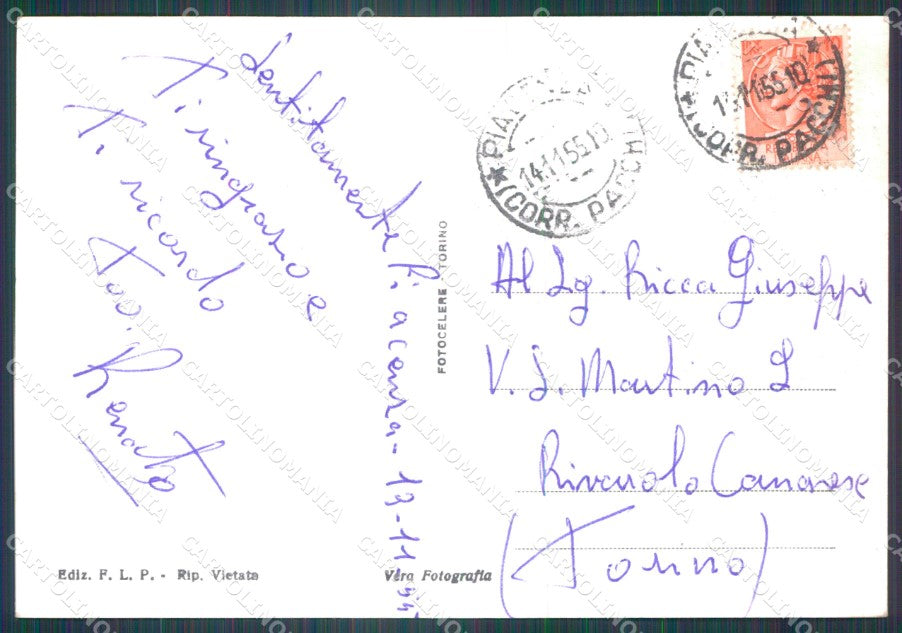 Piacenza - 13-11-
Sentitamente
Ti ringrazio e
Ti ricordo
Renato
Ediz. F. L. P. - Rip. Vietata
Vera Fotografia
FOTOCELERE - TORINO
14.11.55.10
(CORR. PACCHI)
14.11.55.10
(CORR. PACCHI)
Al Sg. Ricca Giuseppe
V. S. Martino 2
Rivarolo Canavese
(Torino)
CARTOLINOMANIA